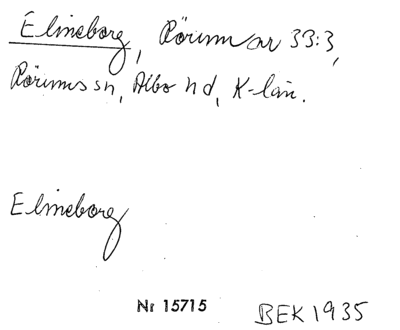 Elineborg, Rörum nr 33:3,
Rörums sn, Albo hd, K-län.
Elineborg
Nr 15715
BEK 1935